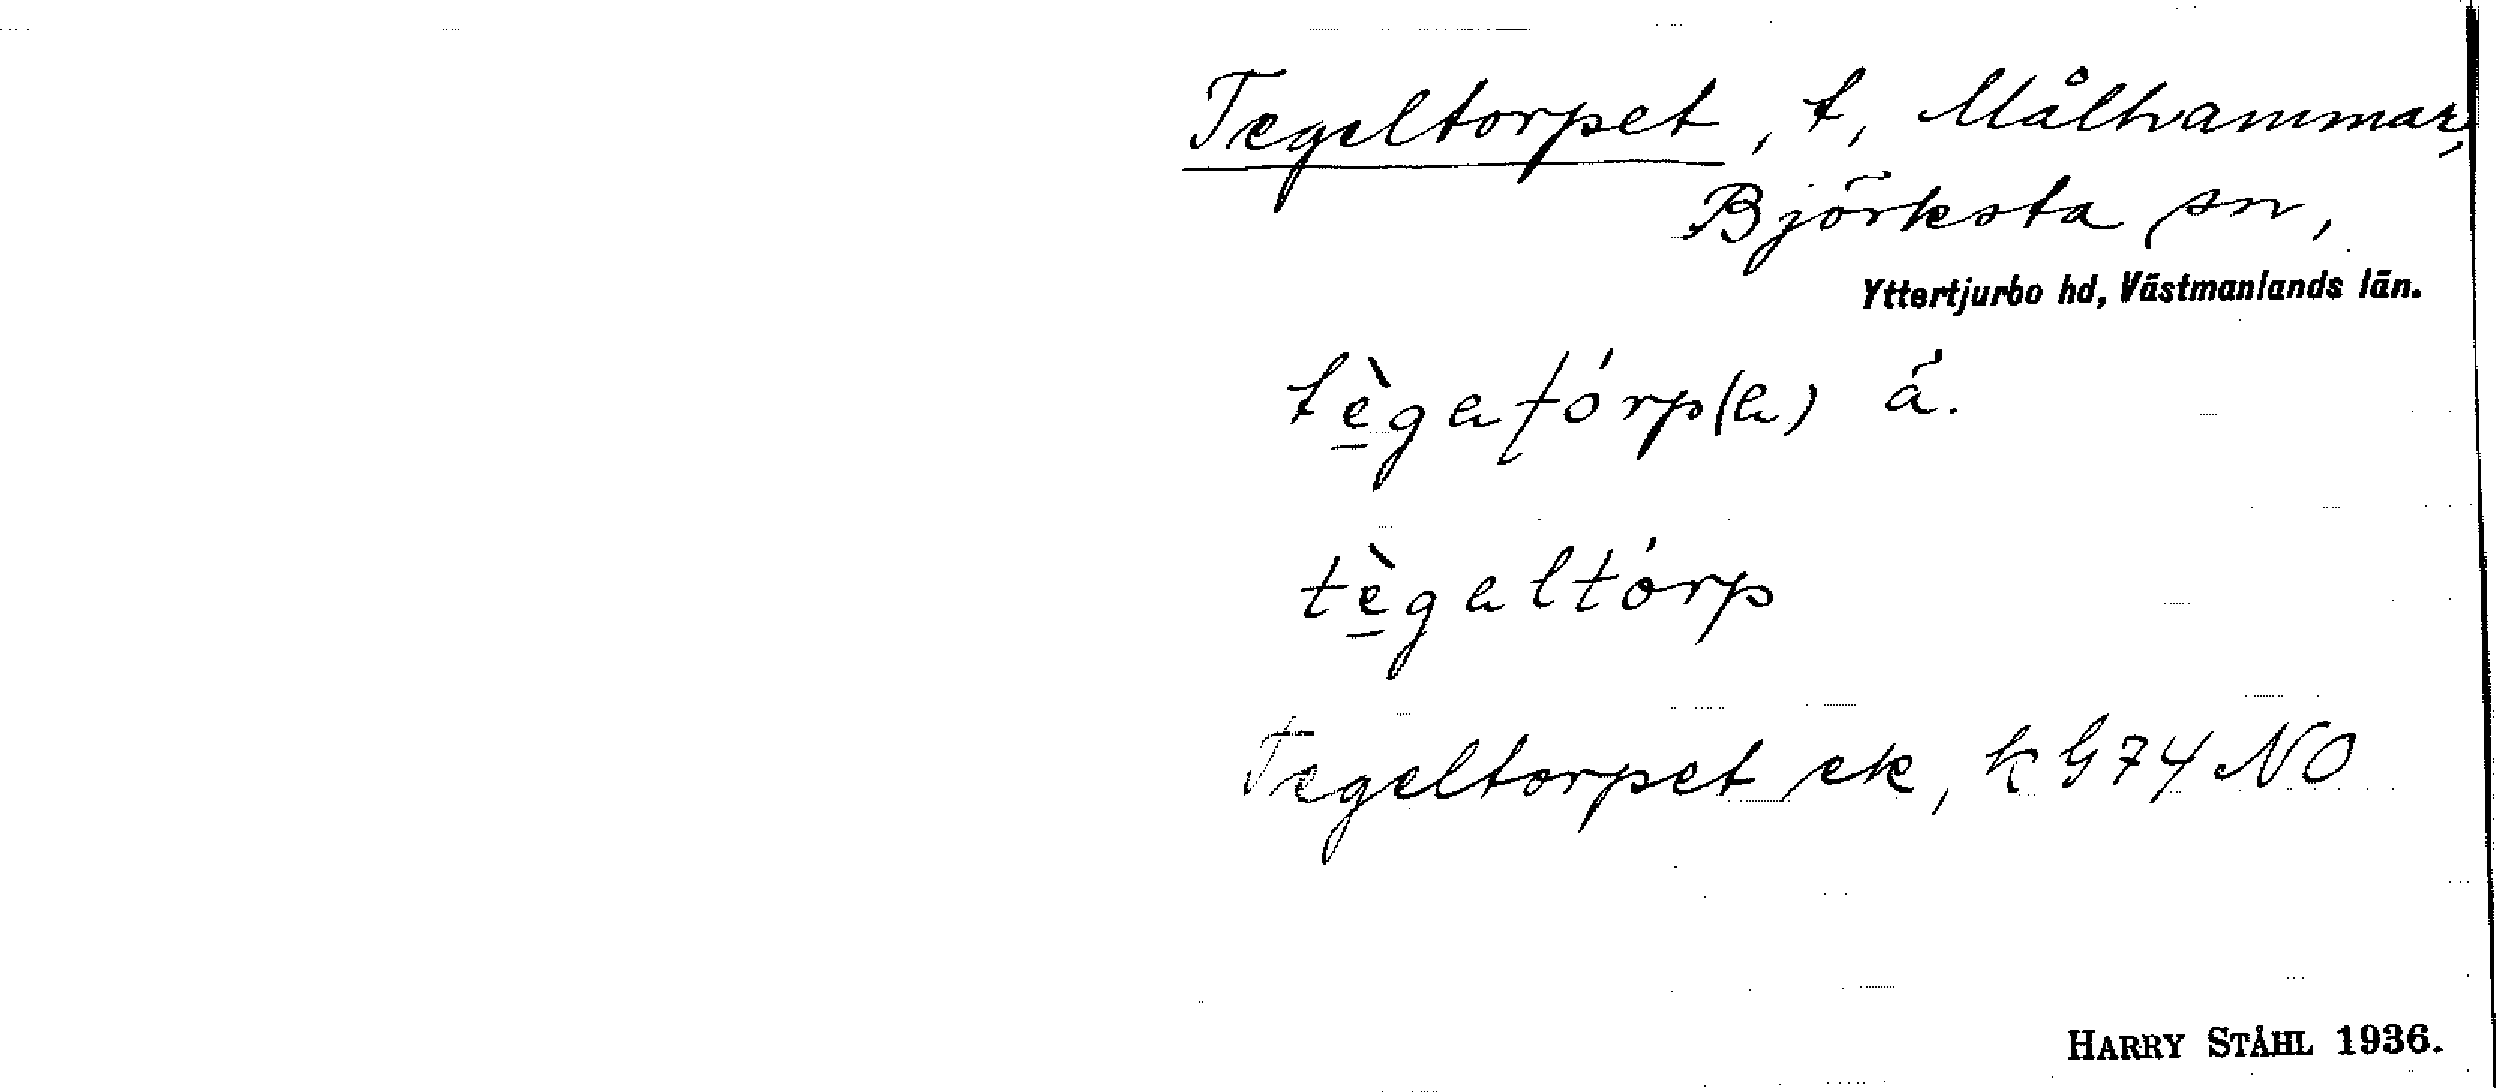 Tegeltorpet, t, Målhammar,
Björksta sn,
Yttertjurbo hd, Västmanlands län.
tègaƭórp(a) ä́.
tègaltórp
Tegeltorpet ek, k G74 NO
HARRY STÅHL 1936.